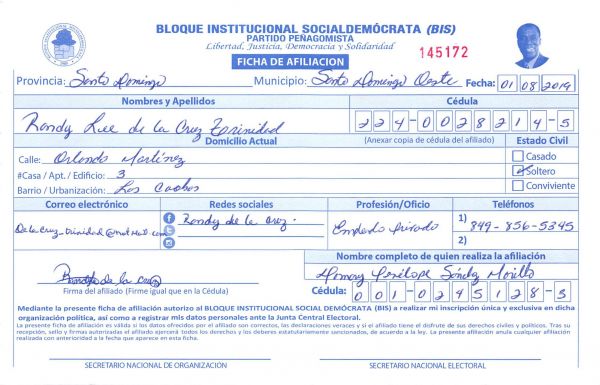 BLOQUE INSTITUCIONAL SOCIALDEMÓCRATA (BIS)
PARTIDO PEÑAGOMISTA
Libertad, Justicia, Democracia y Solidaridad
145172
FICHA DE AFILIACION
Provincia: Santo Domingo Municipio: Santo Domingo Oeste Fecha: 01 08 2019
Nombres y Apellidos Cédula
Randy Lee de la Cruz Trinidad 224-0028214-5
Domicilio Actual (Anexar copia de cédula del afiliado) Estado Civil
Calle: Orlando Martínez Casado
#Casa / Apt. / Edificio: 3 Soltero
Barrio / Urbanización: Los Conviviente
Correo electrónico Redes sociales Profesión/Oficio Teléfonos
DelaCruz_trinidad@hotmail.com Randy de la Cruz. Empleado privado 1) 849-856-5345
2)
Nombre completo de quien realiza la afiliación
Sánchez Morillo
Randy de la Cruz
Firma del afiliado (Firme igual que en la Cédula) Cédula: 001-0245128-3
Mediante la presente ficha de afiliación autorizo al BLOQUE INSTITUCIONAL SOCIAL DEMÓCRATA (BIS) a realizar mi inscripción única y exclusiva en dicha
organización política, así como a registrar mis datos personales ante la Junta Central Electoral.
La presente ficha de afiliación es válida si los datos ofrecidos por el afiliado son correctos, las declaraciones veraces y si el afiliado tiene el disfrute de sus derechos civiles y políticos. Tras su
recepción, sello y firmas autorizadas el afiliado ejercerá todos los derechos y los deberes estatutariamente sancionados, de acuerdo a la ley. La presente afiliación anula cualquier afiliación
realizada con anterioridad a la fecha que aparece en esta ficha.
SECRETARIO NACIONAL DE ORGANIZACIÓN SECRETARIO NACIONAL ELECTORAL